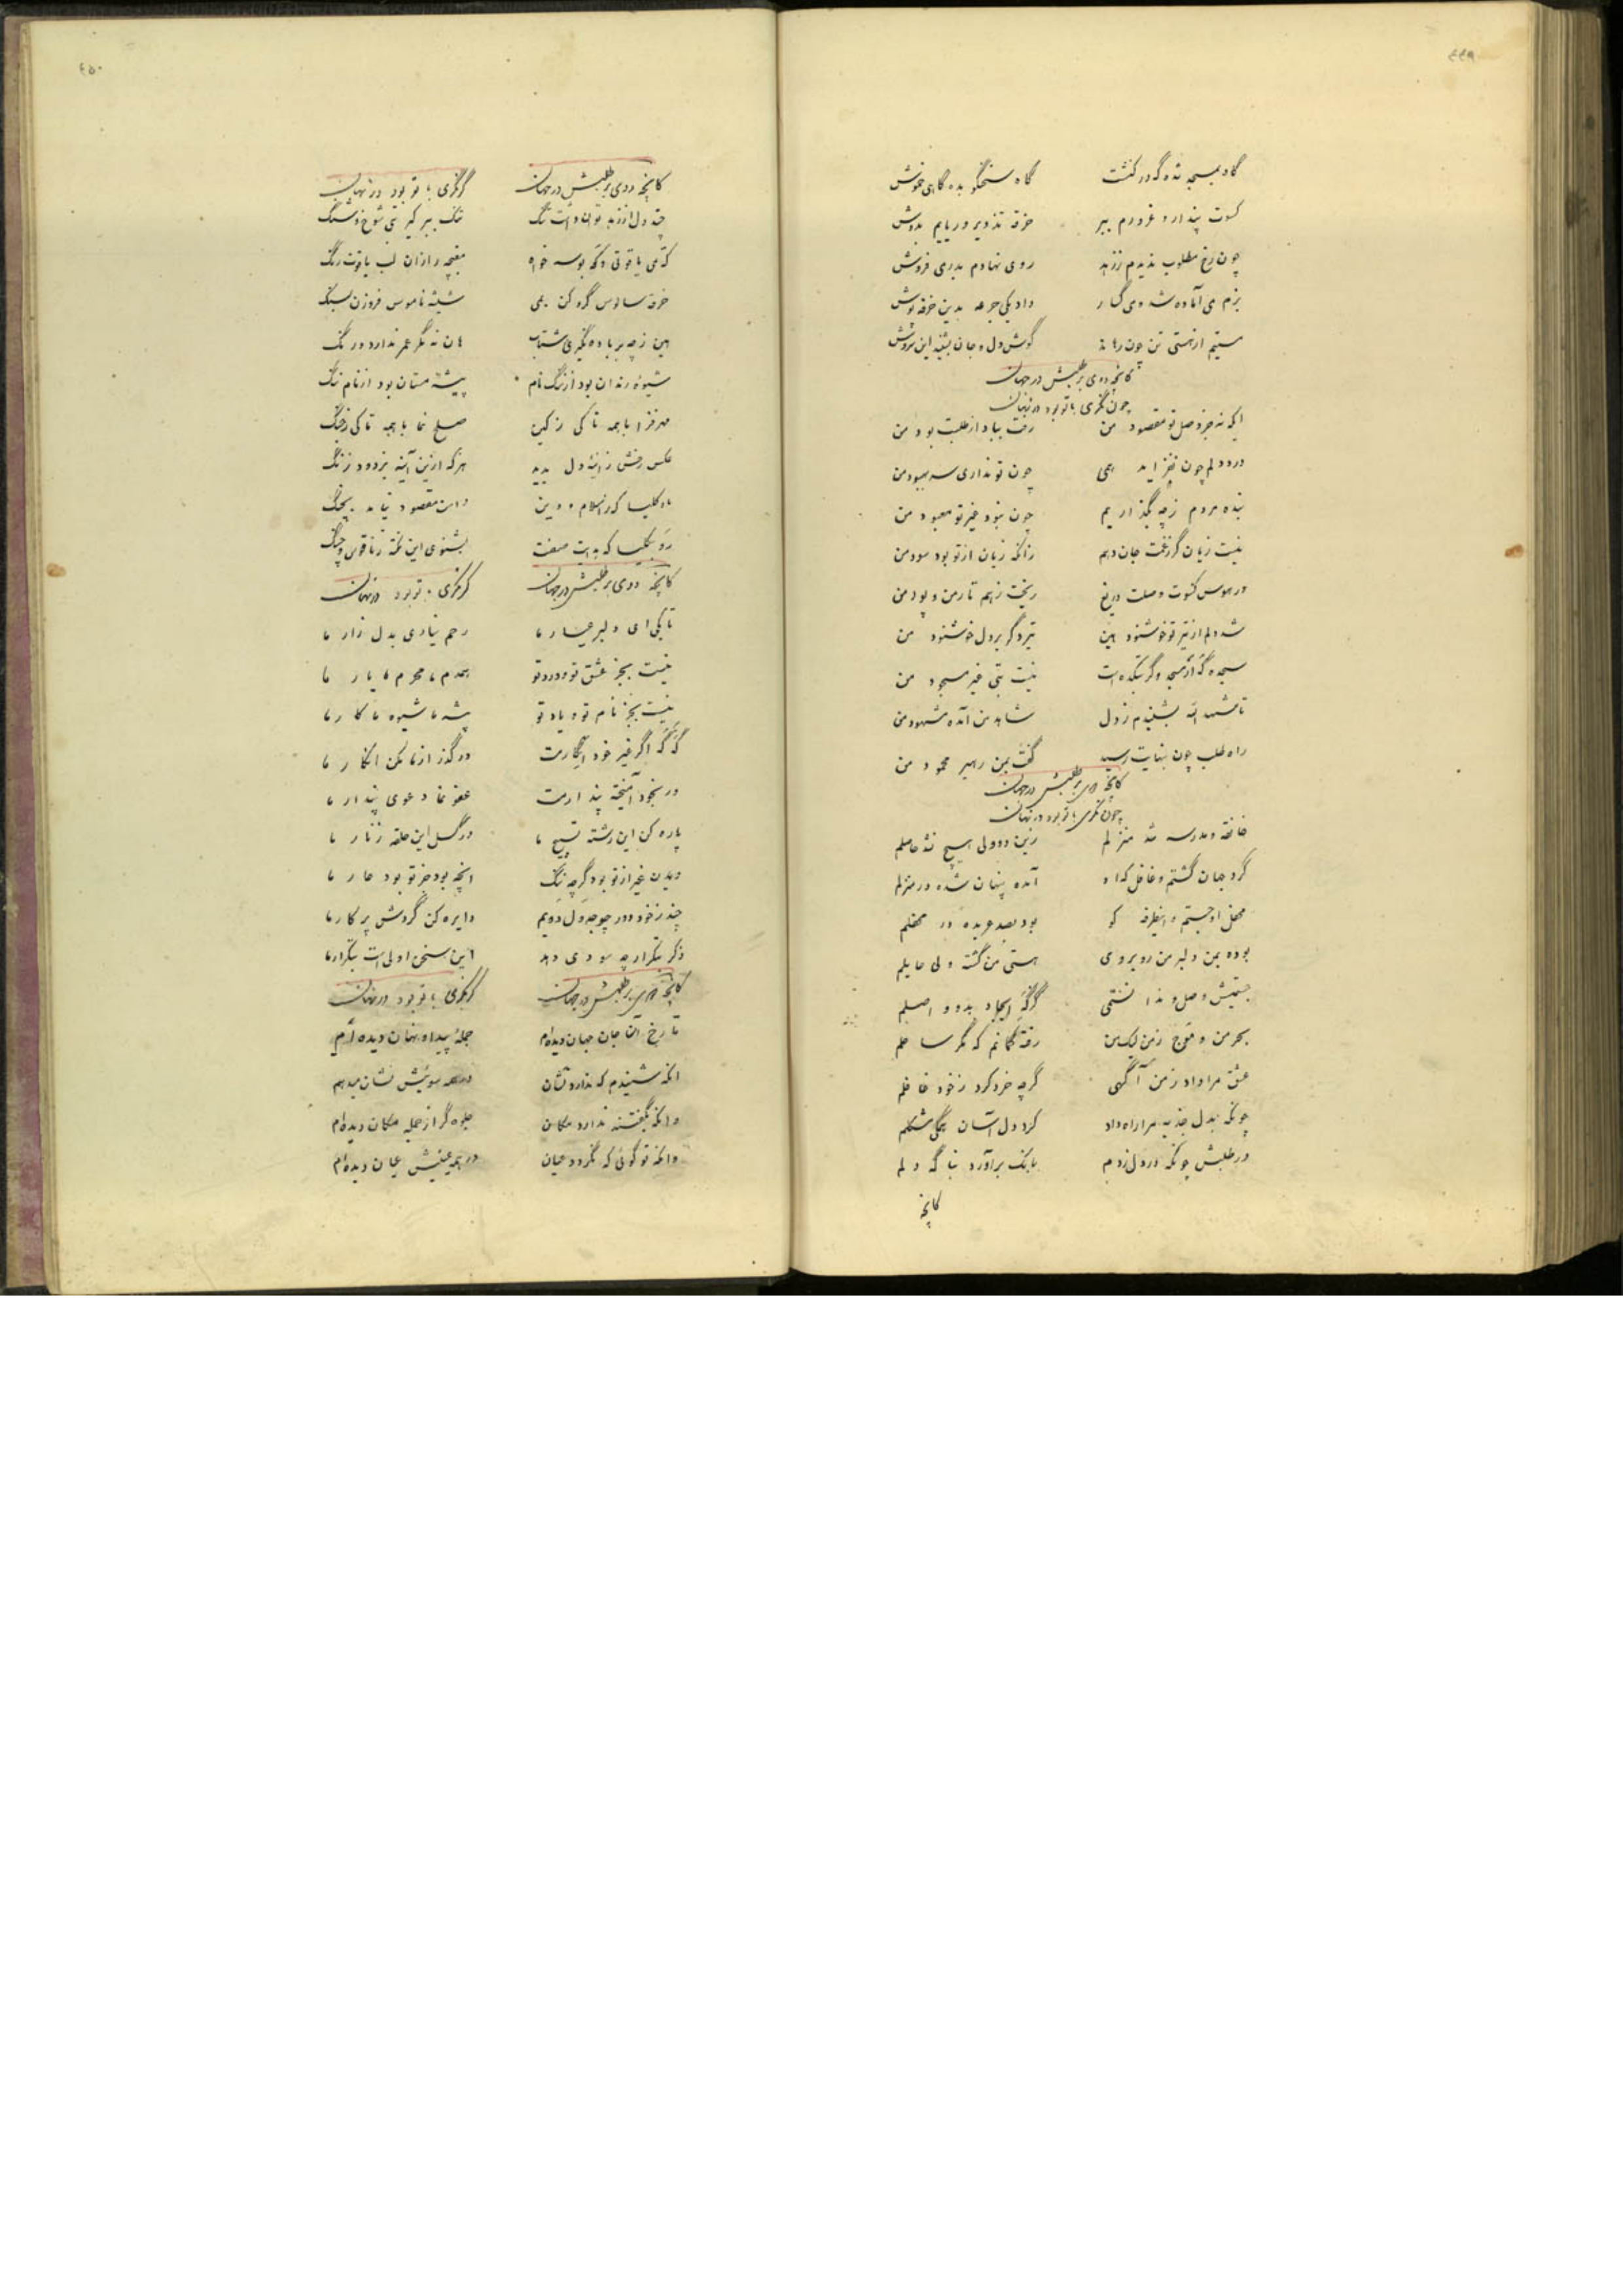 ٤٤٩
گاه بمسجد شده گه در کنشت گاه سخنگو بده گاهی خموش
کسوت پندار و غرورم ببر خرقه تذویر و ریایم بدوش
چون رخ مطلوب ندیدم ززهد روی نهادم بدر می فروش
بزم می آماده شد و می گسار داد یکی جرعه بدین خرقه پوش
مستیم از هستی تن چون رهاند گوش دل و جان بشنید این سروش
کانچه دوی بر طلبش در جهان
چون نگری با تو بود در نهان
ایکه نه جز وصل تو مقصود من رفت بباد از طلبت بود من
درد دلم چون نفزاید همی چون تو نداری سر بهبود من
بنده مردم زچه بگذاریم چون نبود غیر تو معبود من
نیست زیان گر زغمت جان دهم زانکه زیان از تو بود سود من
در هوس کسوت وصلت دریغ ریخت زهم تار من و پود من
شد دلم از تیر تو خوشنود هین تیر دگر بر دل خوشنود من
سجده گه ار مسجد و گر بتکده است نیست بتی غیر مسجود من
تا شهد الله بشنیدم زدل شاهد من آمده مشهود من
راه طلب چون بنهایت رسید گفت بمن رهبر محمود من
کانچه دوی بر طلبش در جهان
چون نگری با تو بود در نهان
خانقه و مدرسه شد منزلم زین دو ولی هیچ نشد حاصلم
گرد جهان گشتم و غافل که او آمده پنهان شده در منزلم
محفل او جستم و اینطرفه کو بود بصد عربده در محفلم
بوده بمن دلبر من روبروی هستی من گشته ولی حایلم
جستمیش وصل و ندانستمی گرگه ایجاد بدو واصلم
بحر من و موج زمن لیک من رفته گمانم که مگر ساحلم
عشق مرا داد زمن آگهی گرچه خرد کرد زخود غافلم
چونکه بدل جذبه مرا راه داد کرد دل آسان همگی مشکلم
در طلبش چونکه در دل زدم بانک برآورد بناگه دلم
کانچه
٤٥٠
کانچه دوی بر طلبش در جهان گر نگری با تو بود در نهان
چند دل از زهد توان داشت تنگ تنگ ببر گیر بتی شوخ و شنگ
که می یاقوتی و که بوسه خواه مغبچه را زان لب یاقوت رنگ
خرقه سالوس گرو کن بمی شیشه ناموس فرو زن بسنگ
هین زچه بر باده نگیری شتاب هان نه مگر عمر ندارد درنگ
شیوه رندان بود از ننگ نام پیشه مستان بود از نام ننگ
مهر فزا با همه تا کی زکین صلح نما با همه تا کی زجنگ
عکس رخش زاینه دل بدید هر که ازین آینه بزدود زنگ
کلیسا که ز اسلام و دین دامن مقصود نیامد بچنگ
رو بکلیسا که بدیت صفت بشنوی این نکته زناقوس و چنگ
کانچه دوی بر طلبش در جهان گر نگری با تو بود در نهان
تا بکی ای دلبر عیار ما رحم نیاری بدل زار ما
نیست بجز عشق تو و درد تو همدم ما محرم ما یار ما
نیست بجز نام تو و یاد تو پیشه ما شیوه ما کار ما
گه گه اگر غیر خود انگارمت در گذر از ما مکن انکار ما
ور بخود آمیخته پندارمت عفو نما دعوی پندار ما
پاره کن این رشته تسبیح ما در گسل این حلقه زنار ما
دیدن غیر از تو بود گرچه ننگ آنچه بود جز تو بود عار ما
چند زخود دور چو جدول دویم دایره کن گردش پرکار ما
ذکر بتکرار چه سودی دهد این سخن اولی است بتکرار ما
کانچه دوی بر طلبش در جهان گر نگری با تو بود در نهان
تا رخ آن جان جهان دیده ام جمله پیدا و نهان دیده ام
انکه شنیدم که ندارد نشان در همه سوئیش نشان میدهم
وانکه بگفتند ندارد مکان جلوه گر از جمله مکان دیده ام
وانکه تو گوئی که نگردد عیان در همه عینیش عیان دیده ام